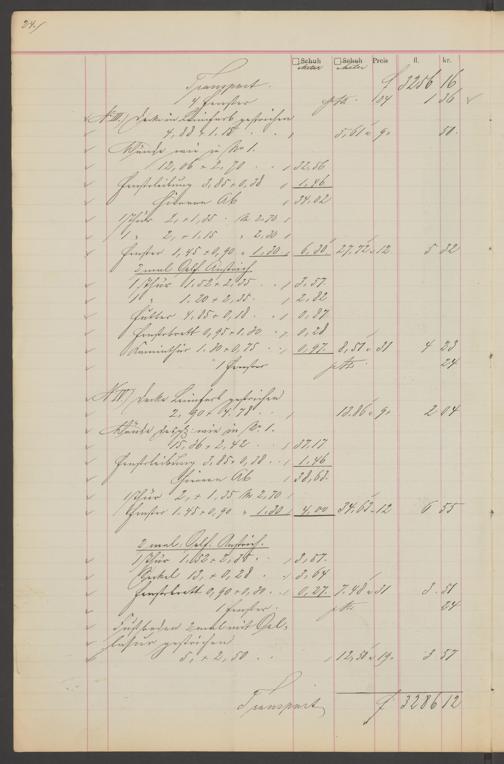 24./
□Schuh □Schuh Preis fl. kr.
Meter Meter
Transport. f 3256 16
4 Fenster pptr. 24 1 36
N. III/ Decke in Leimfarb gestrichen
4,88 + 1.15 " 5,61 " 9. 50.
Wände wie in No. 1.
12,06 + 2,70 " 32,56
Fensterleibung 3,85 + 0,38 1,46
Hievon Ab 34,02
1 Thür 2, + 1,35 M. 2.70
1 " 2, + 1.15 " 2,30
Fenster 1,45 + 0,90 " 1.30 6.30 27,72 " 12 5 32
2 mal Oelf. Anstrich.
1 Thür 1.52 + 2,35 " 3,57
1 " 1.20 + 2,35. " 2,82
Futter 4,85 + 0,18 " 0,87
Fensterbrett 0,95 + 0.30 " 0,28
Kaminthür 1.30 + 0,75 " 0,97 8,51 " 31 4 23
1 Fenster pptr. 24
N. IV/ Decke Leimfarb gestrichen
2,90 + 4.78 12.86 " 9. 2 04
Wände wie in No. 1.
15,36 + 2,42 37,17
Fensterleibung 3,85 + 0,38 1,46
Hievon Ab 38,63
1 Thür 2, + 1,35 M. 2,70
Fenster 1.45 + 0,90 " 1.30 4,00 34,63 " 12 6 55
2 mal. Oelf. Anstrich.
1 Thür 1.52 + 2,35 3,57
Sockel 13, + 0,28 3,64
Fensterbrett 0,90 + 0,30 0,27 7.48 " 31 3 51
1 Fenster. pptr. 24
Fußboden 2 mal mit Oel-
lasur gestrichen
5, + 2,50 12,50 " 19. 3 57
Transport f 3286 12